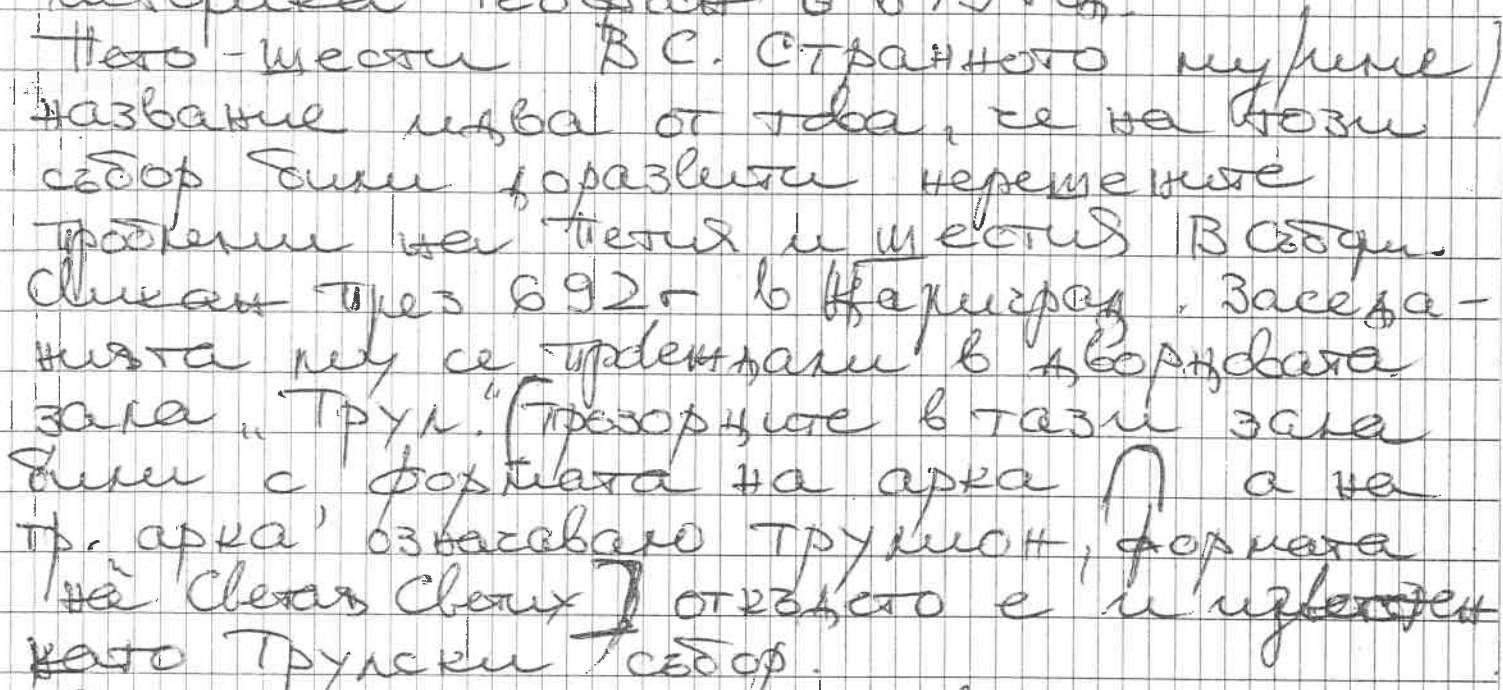 Пето-шести ВС. Странното му /име/
название идва от това, че на този
събор били доразвити нерешените
проблеми на Петия и шестия В Събори.
Свикан през 692г в Цариград. Заседа-
нията му се провеждали в дворцовата
зала „Трул." [прозорците в тази зала
били с формата на арка ∩ а на
гр. арка' означавало трулион, формата
на Светая Светих] откъдето е и известен
като Трулски събор.